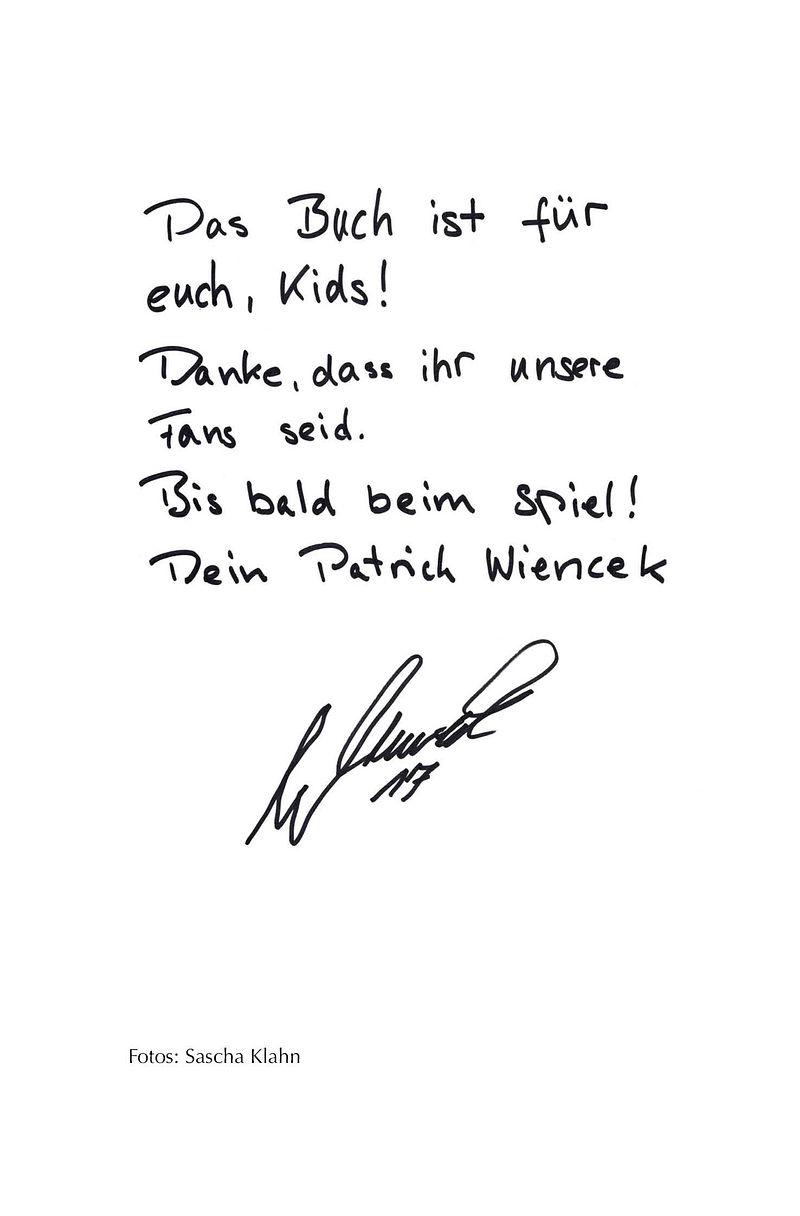 Das Buch ist für
euch, Kids!
Danke, dass ihr unsere
Fans seid.
Bis bald beim Spiel!
Dein Patrick Wiencek
17
Fotos: Sascha Klahn